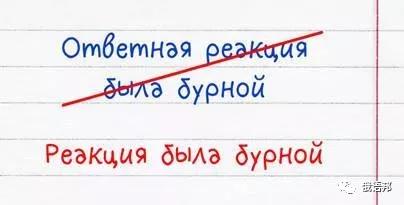 Ответная реакция
была бурной
Реакция была бурной
俄语邦